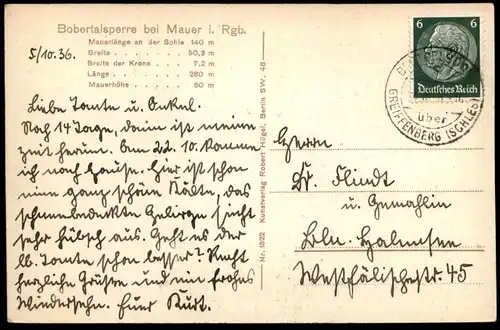 Bobertalsperre bei Mauer i. Rgb.
Mauerlänge an der Sohle 140 m
Breite „ „ „ 50,3 m
Breite der Krone „ „ 7,2 m
Länge „ „ „ 280 m
Mauerhöhe „ „ 60 m
5/10.36.
Liebe Tante u. Onkel.
Noch 14 Tage, dann ist meine
Zeit herum. Am 22. 10. komme
ich nach Hause. Hier ist schon
eine ganz schöne Kälte, das
schneebedeckte Gebirge sieht
sehr hübsch aus. Geht es der
lb. Tante schon besser? Recht
herzliche Grüße und ein frohes
Wiedersehn. Euer Kurt.
Nr. 1522 Kunstverlag Robert Högel, Berlin SW. 48
6 6
Deutsches Reich
über
GREIFFENBERG (SCHLES)
Herrn
Dr. Flindt
u. Gemahlin
Bln. Halensee
Westfälischestr. 45